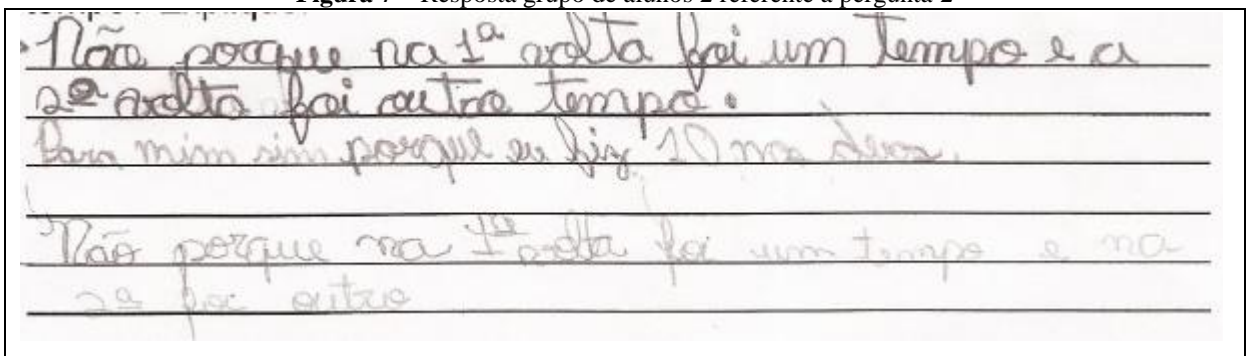 Figura 7 – Resposta grupo de alunos 2 referente à pergunta 2
Não porque na 1ª volta foi um tempo e a
2ª volta foi outro tempo.
Para mim sim porque eu fiz 10 nas
Não porque na 1ª volta foi um tempo e na
2ª foi outro